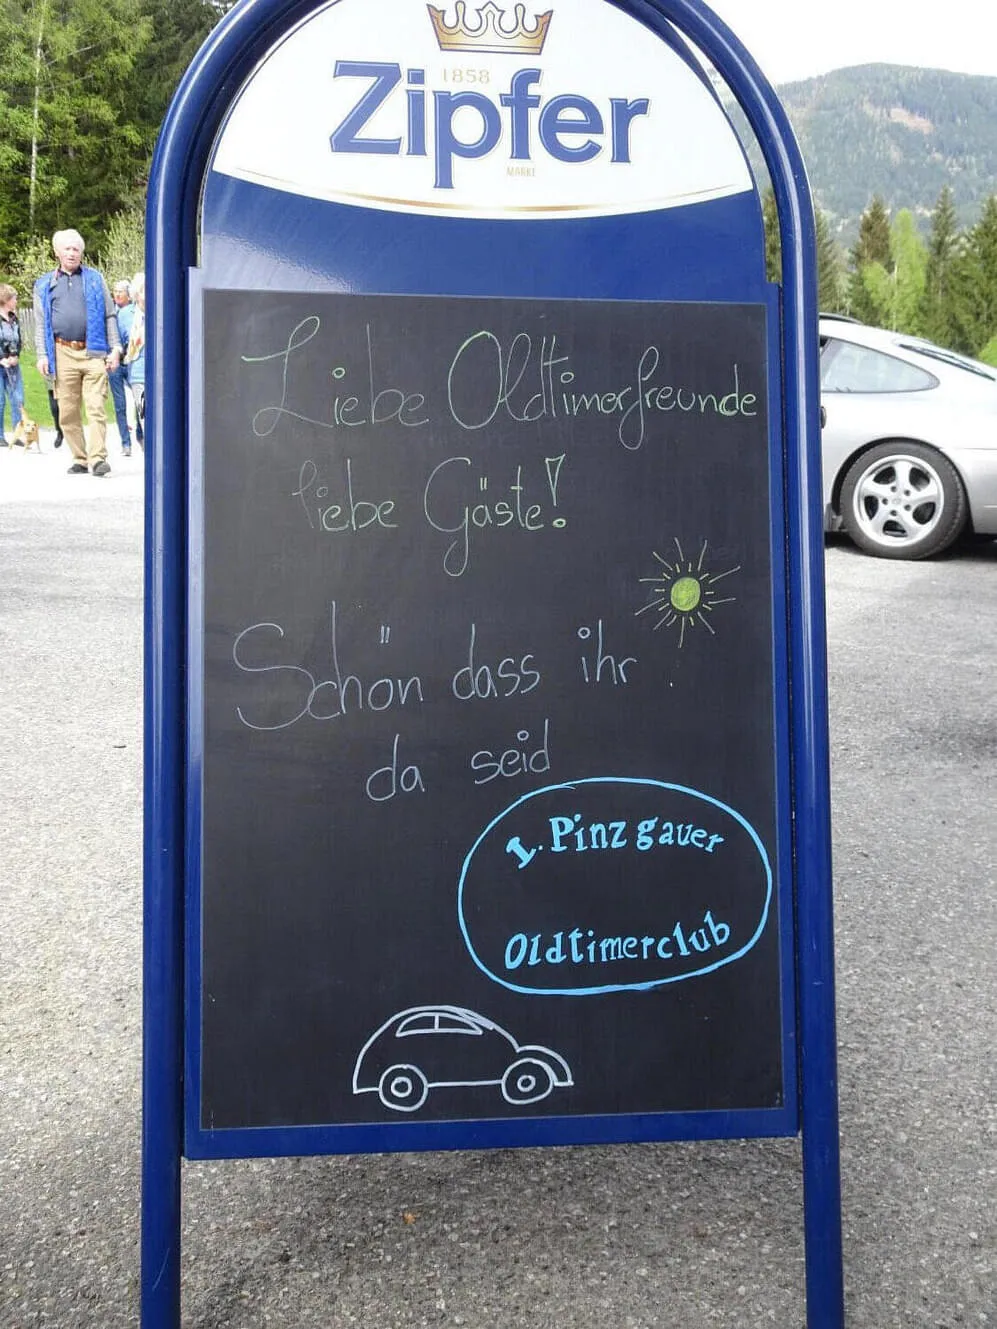 1858
Zipfer
MARKE
Liebe Oldtimerfreunde
liebe Gäste!
Schön dass ihr
da seid
1. Pinzgauer
Oldtimerclub